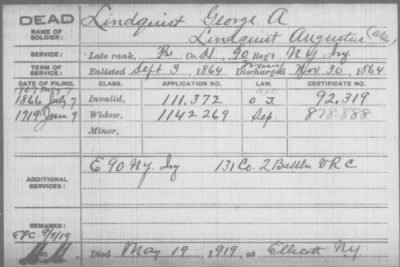 DEAD
NAME OF SOLDIER:
Lindquist George A
Lindquist Augustus (Alias)
SERVICE:
Late rank, Co. D, 90 Reg't NY Inf
TERM OF SERVICE:
Enlisted Sept 3, 1864 Discharged Nov 30, 1864
DATE OF FILING. CLASS. APPLICATION NO. LAW. CERTIFICATE NO.
1866 July 7 Invalid, 111.372 92.319
1919 June 9 Widow, 1142269 878.888
Minor,
ADDITIONAL SERVICES:
E 90 NY. Inf 131 Co. 2 Battln V R C
REMARKS:
Died May 19, 1919, at Ellicott NY.